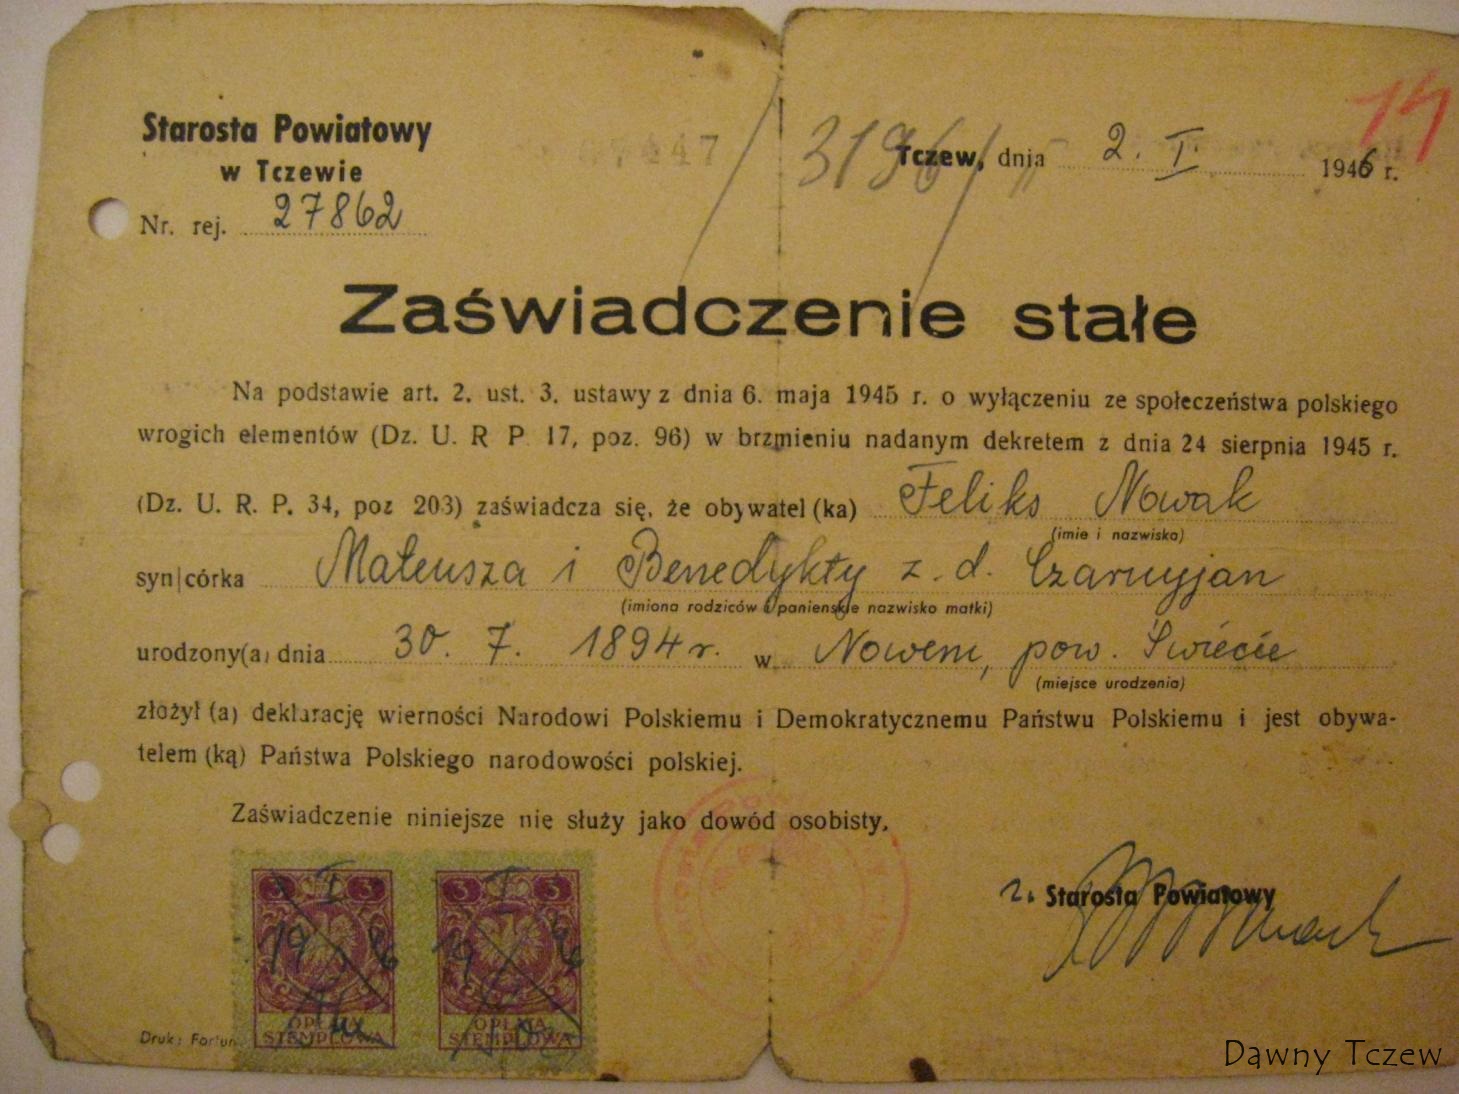 Starosta Powiatowy
w Tczewie
Nr. rej. 27862
07447
3196
Tczew, dnia 2. I. 1946 r.
14
Zaświadczenie stałe
Na podstawie art. 2. ust. 3. ustawy z dnia 6. maja 1945 r. o wyłączeniu ze społeczeństwa polskiego
wrogich elementów (Dz. U. R P. 17, poz. 96) w brzmieniu nadanym dekretem z dnia 24 sierpnia 1945 r.
(Dz. U. R. P. 34, poz 203) zaświadcza się, że obywatel (ka) Feliks Nowak
(imie i nazwisko)
syn|córka Mateusza i Benedykty z. d. Czarnyjan
(imiona rodziców i panieńskie nazwisko matki)
urodzony(a) dnia 30. 7. 1894 r. w Nowem, pow. Świecie
(miejsce urodzenia)
złożył (a) deklarację wierności Narodowi Polskiemu i Demokratycznemu Państwu Polskiemu i jest obywa-
telem (ką) Państwa Polskiego narodowości polskiej.
Zaświadczenie niniejsze nie służy jako dowód osobisty.
3 I 3 3 I 3
19 46 19 46
OPŁATA OPŁATA
STEMPLOWA STEMPLOWA
z. Starosta Powiatowy
Druk: Fortun
Dawny Tczew